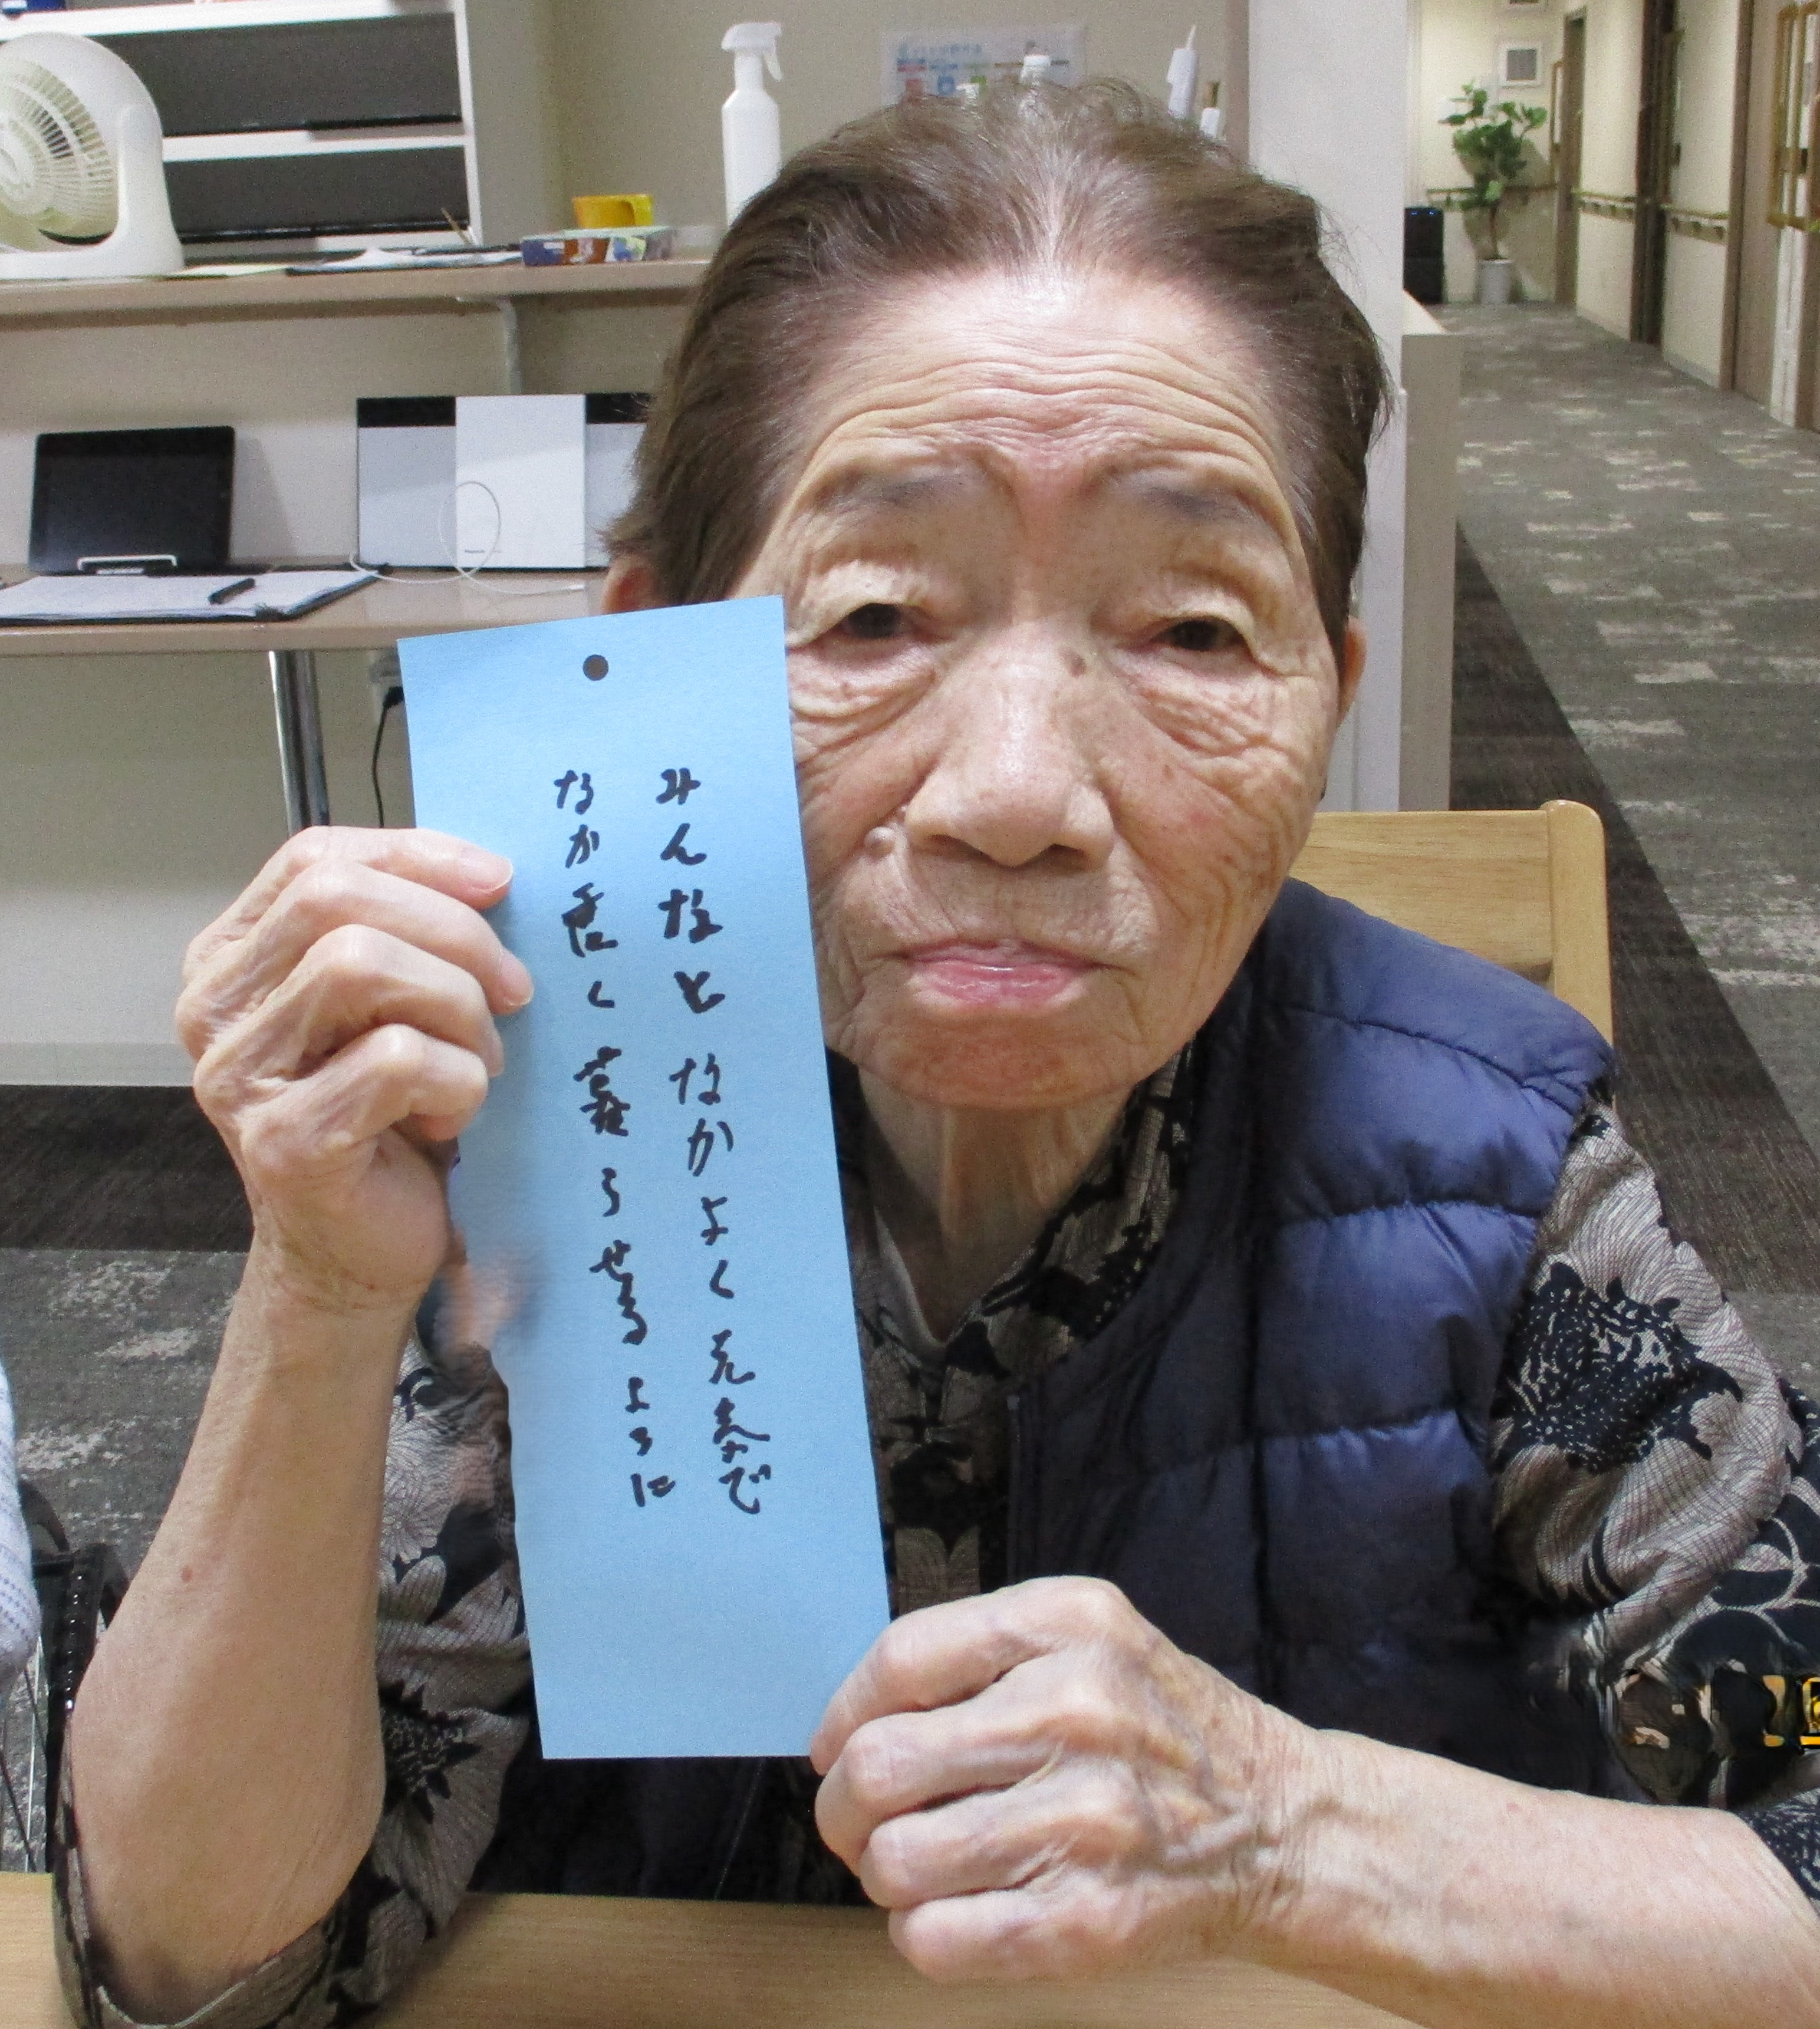 みんなと なかよく 元気で
なか良く 暮らせるように